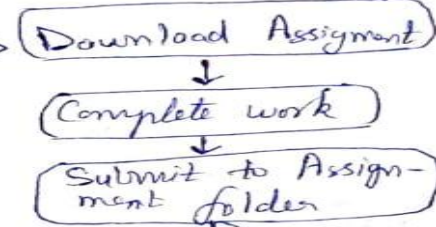 Download Assigment
Complete work
Submit to Assign-
ment folder